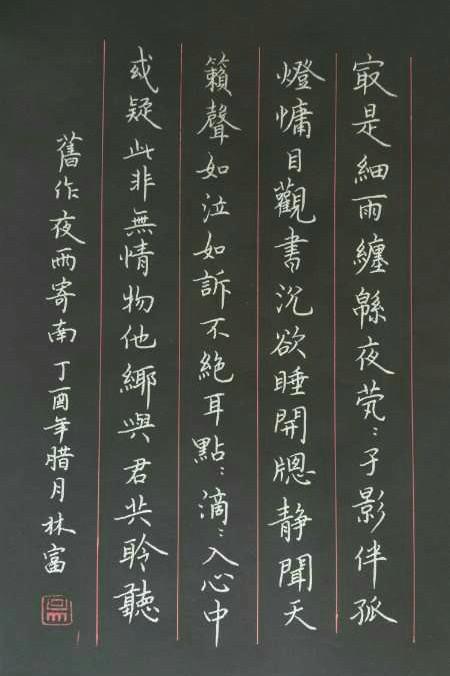 㝡是細雨纏緜夜茕〻孑影伴孤
燈慵目觀書沉欲睡開牎静聞天
籟聲如泣如訴不絶耳點〻滴〻入心中
或疑此非無情物他鄉與君共聆聽
舊作夜雨寄南 丁酉年腊月林富